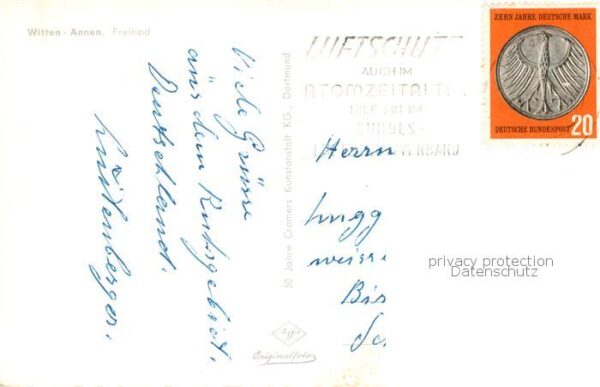 Witten - Annen, Freibad
Viele Grüsse
aus dem Ruhrgebiet.
Deutschland.
50 Jahre Cramers Kunstanstalt KG., Dortmund
Agfa
Originalfoto
LUFTSCHUTZ
AUCH IM
ATOMZEITALTER
BUNDES-
ZEHN JAHRE DEUTSCHE MARK
DEUTSCHE BUNDESPOST
20
Herrn
weisse
Bis
privacy protection
Datenschutz